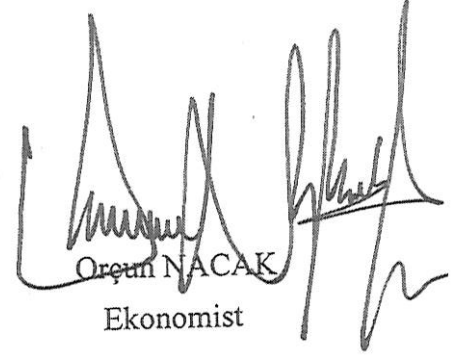 Orçun NACAK
Ekonomist